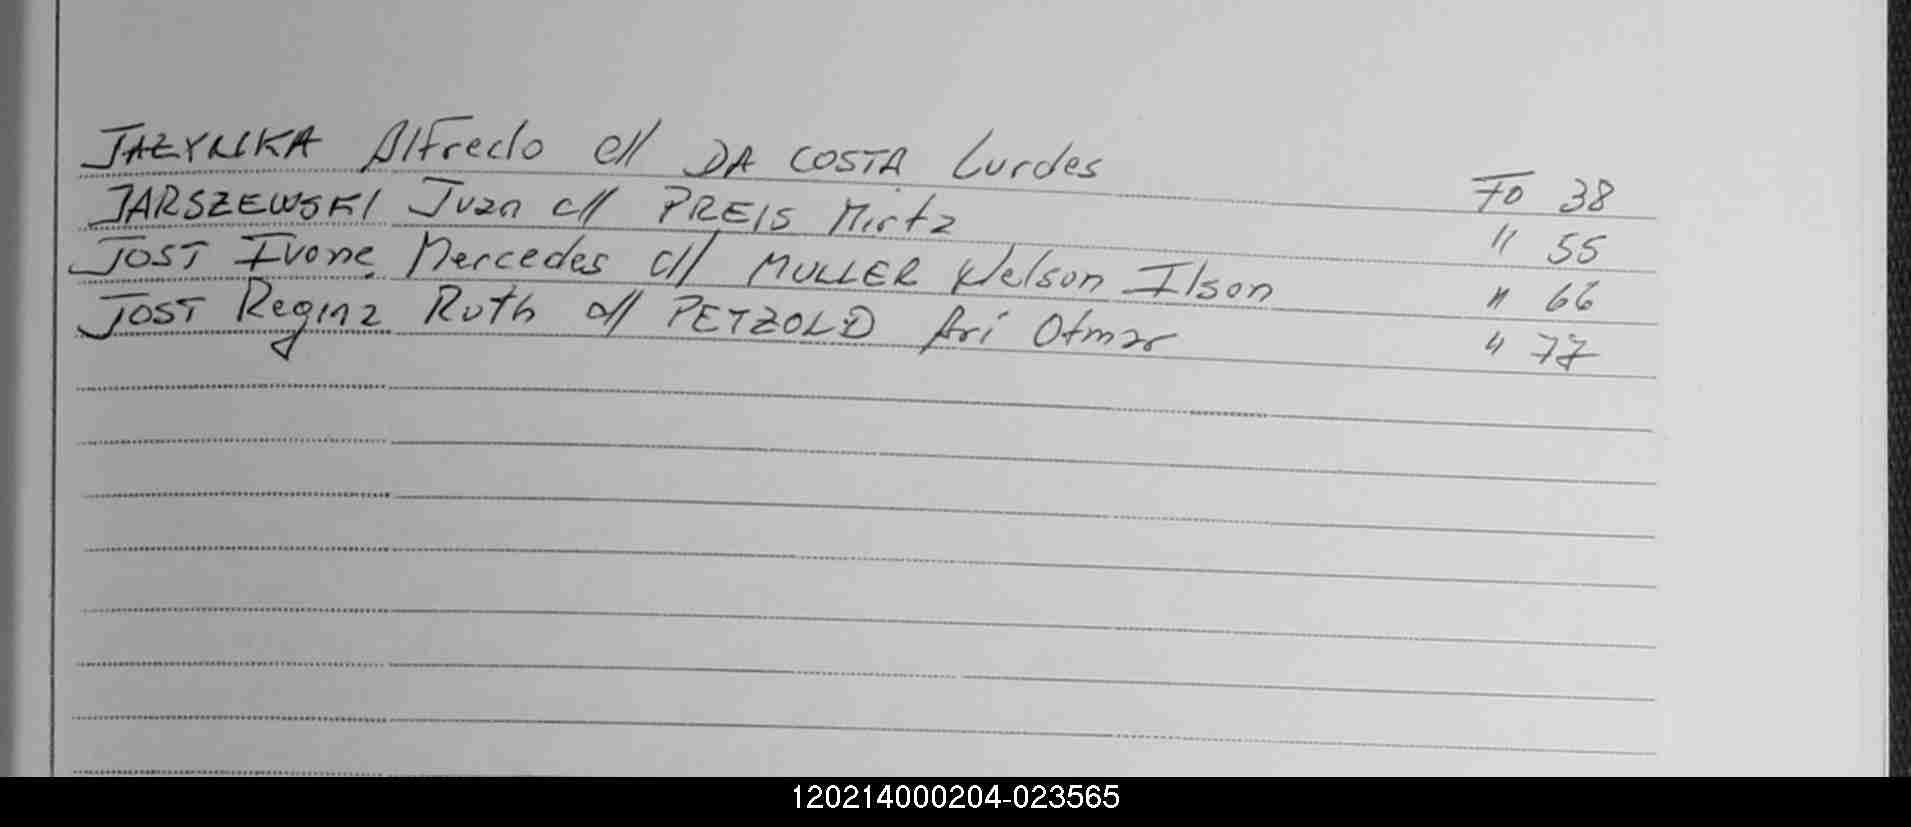 JAZYNKA Alfredo c// DA COSTA Lurdes Fo 38
JARSZEWSKI Juan c// PREIS Mirta " 55
JOST Ivone Mercedes c// MULLER Nelson Ilson " 66
JOST Regina Ruth c// PETZOLD Ari Otmar " 77
120214000204-023565